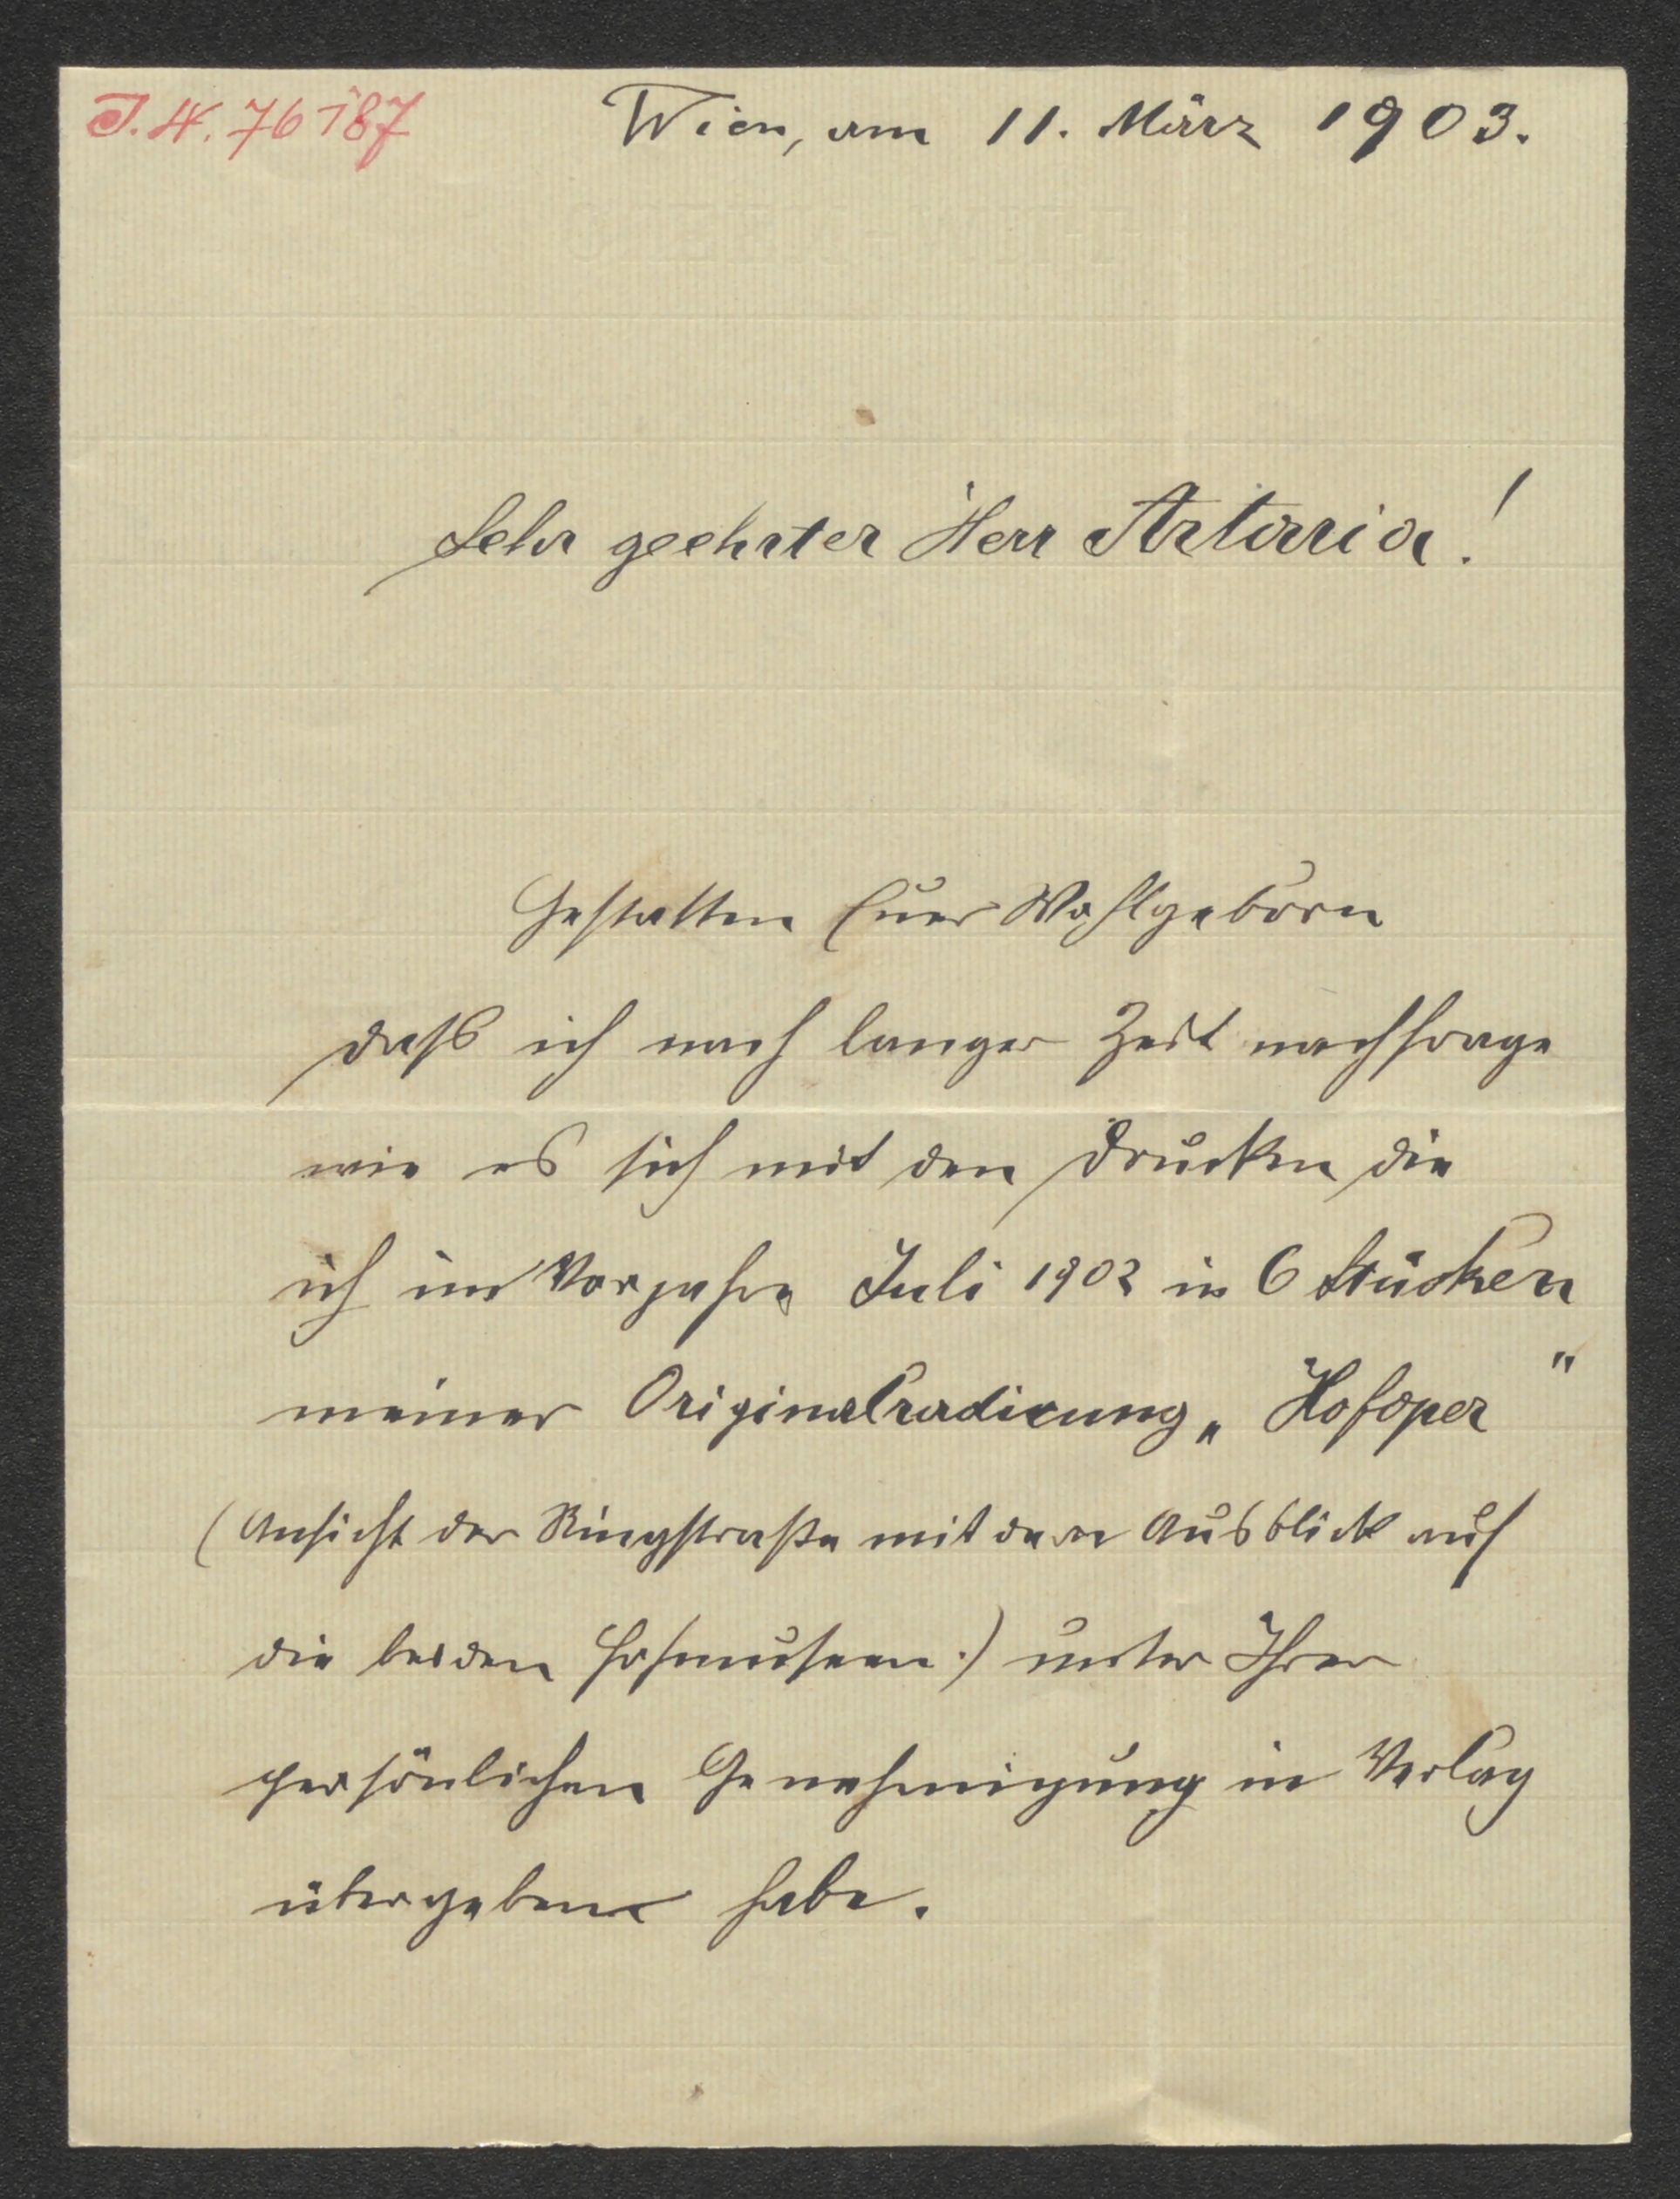 J.N. 76187
Wien, am 11. März 1903.
Sehr geehrter Herr Artaria!
Gestatten Euer Wohlgeborn
daß ich nach langer Zeit nachfrage
wie es sich mit den Drucken die
ich im Vorjahre Juli 1902 in 6 Stücken
meiner Originalradierung „Hofoper"
(Ansicht der Ringstraße mit dem Ausblick auf
die beiden Hofmuseen.) unter Ihrer
persönlichen Genehmigung in Verlag
übergeben habe.